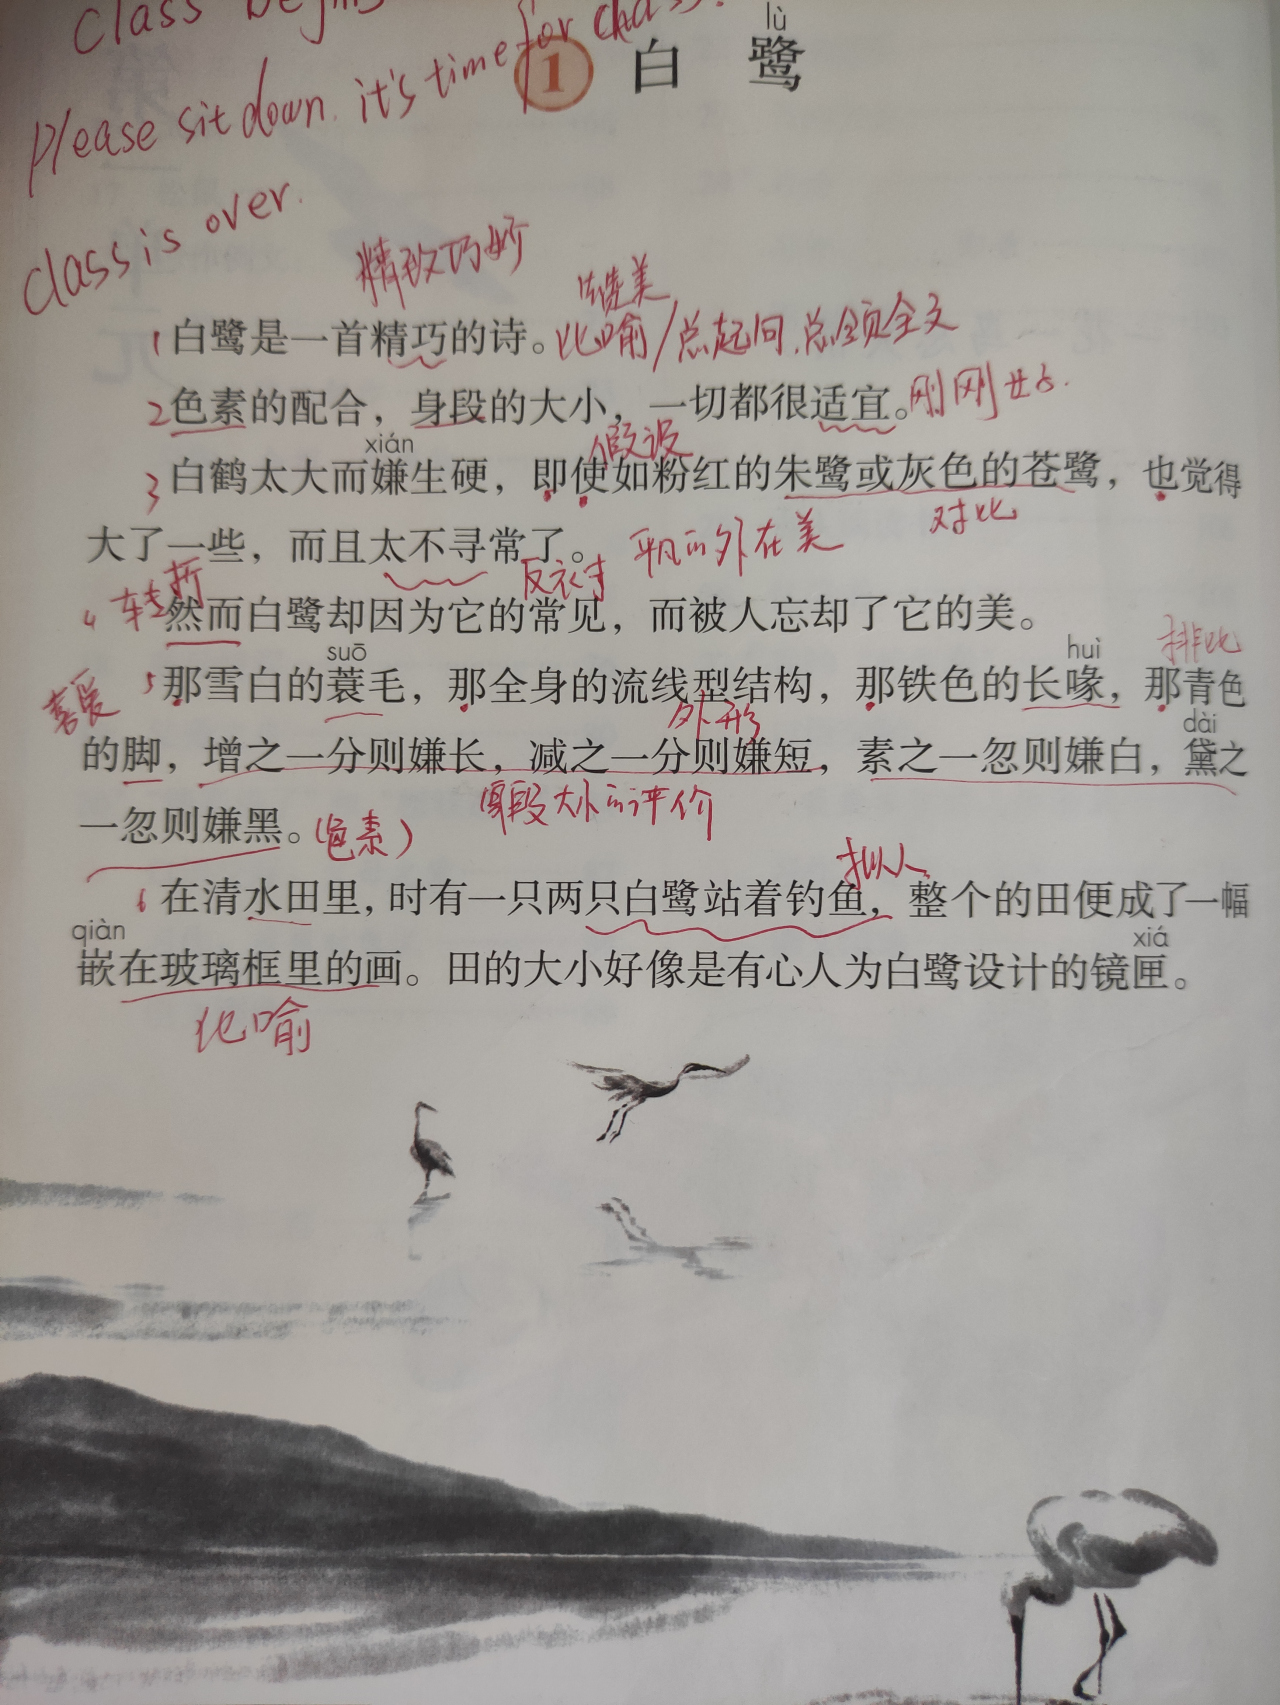 class begin
please sit down. it's time for class.
lù
1 白鹭
class is over.
精致巧妙
赞美
1 白鹭是一首精巧的诗。比喻/总起句.总领全文
2 色素的配合，身段的大小，一切都很适宜。刚刚好.
xián 假设
3 白鹤太大而嫌生硬，即使如粉红的朱鹭或灰色的苍鹭，也觉得
对比
大了一些，而且太不寻常了。平凡的外在美
转折 反衬
4 然而白鹭却因为它的常见，而被人忘却了它的美。
suō huì 排比
喜爱 5 那雪白的蓑毛，那全身的流线型结构，那铁色的长喙，那青色
外形 dài
的脚，增之一分则嫌长，减之一分则嫌短，素之一忽则嫌白，黛之
身段大小的评价
一忽则嫌黑。(色素)
拟人
6 在清水田里，时有一只两只白鹭站着钓鱼，整个的田便成了一幅
qiàn xiá
嵌在玻璃框里的画。田的大小好像是有心人为白鹭设计的镜匣。
比喻